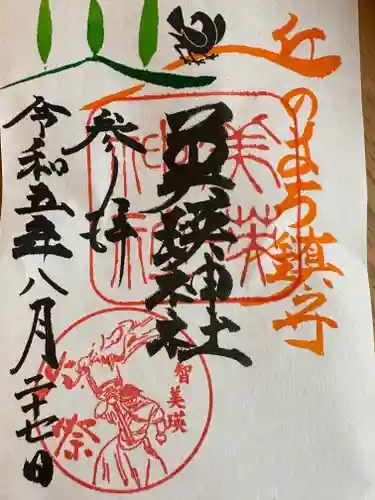 丘のまち鎮守
美瑛神社
参拝
令和五年八月二十七日
美瑛
神社
智美瑛
火祭